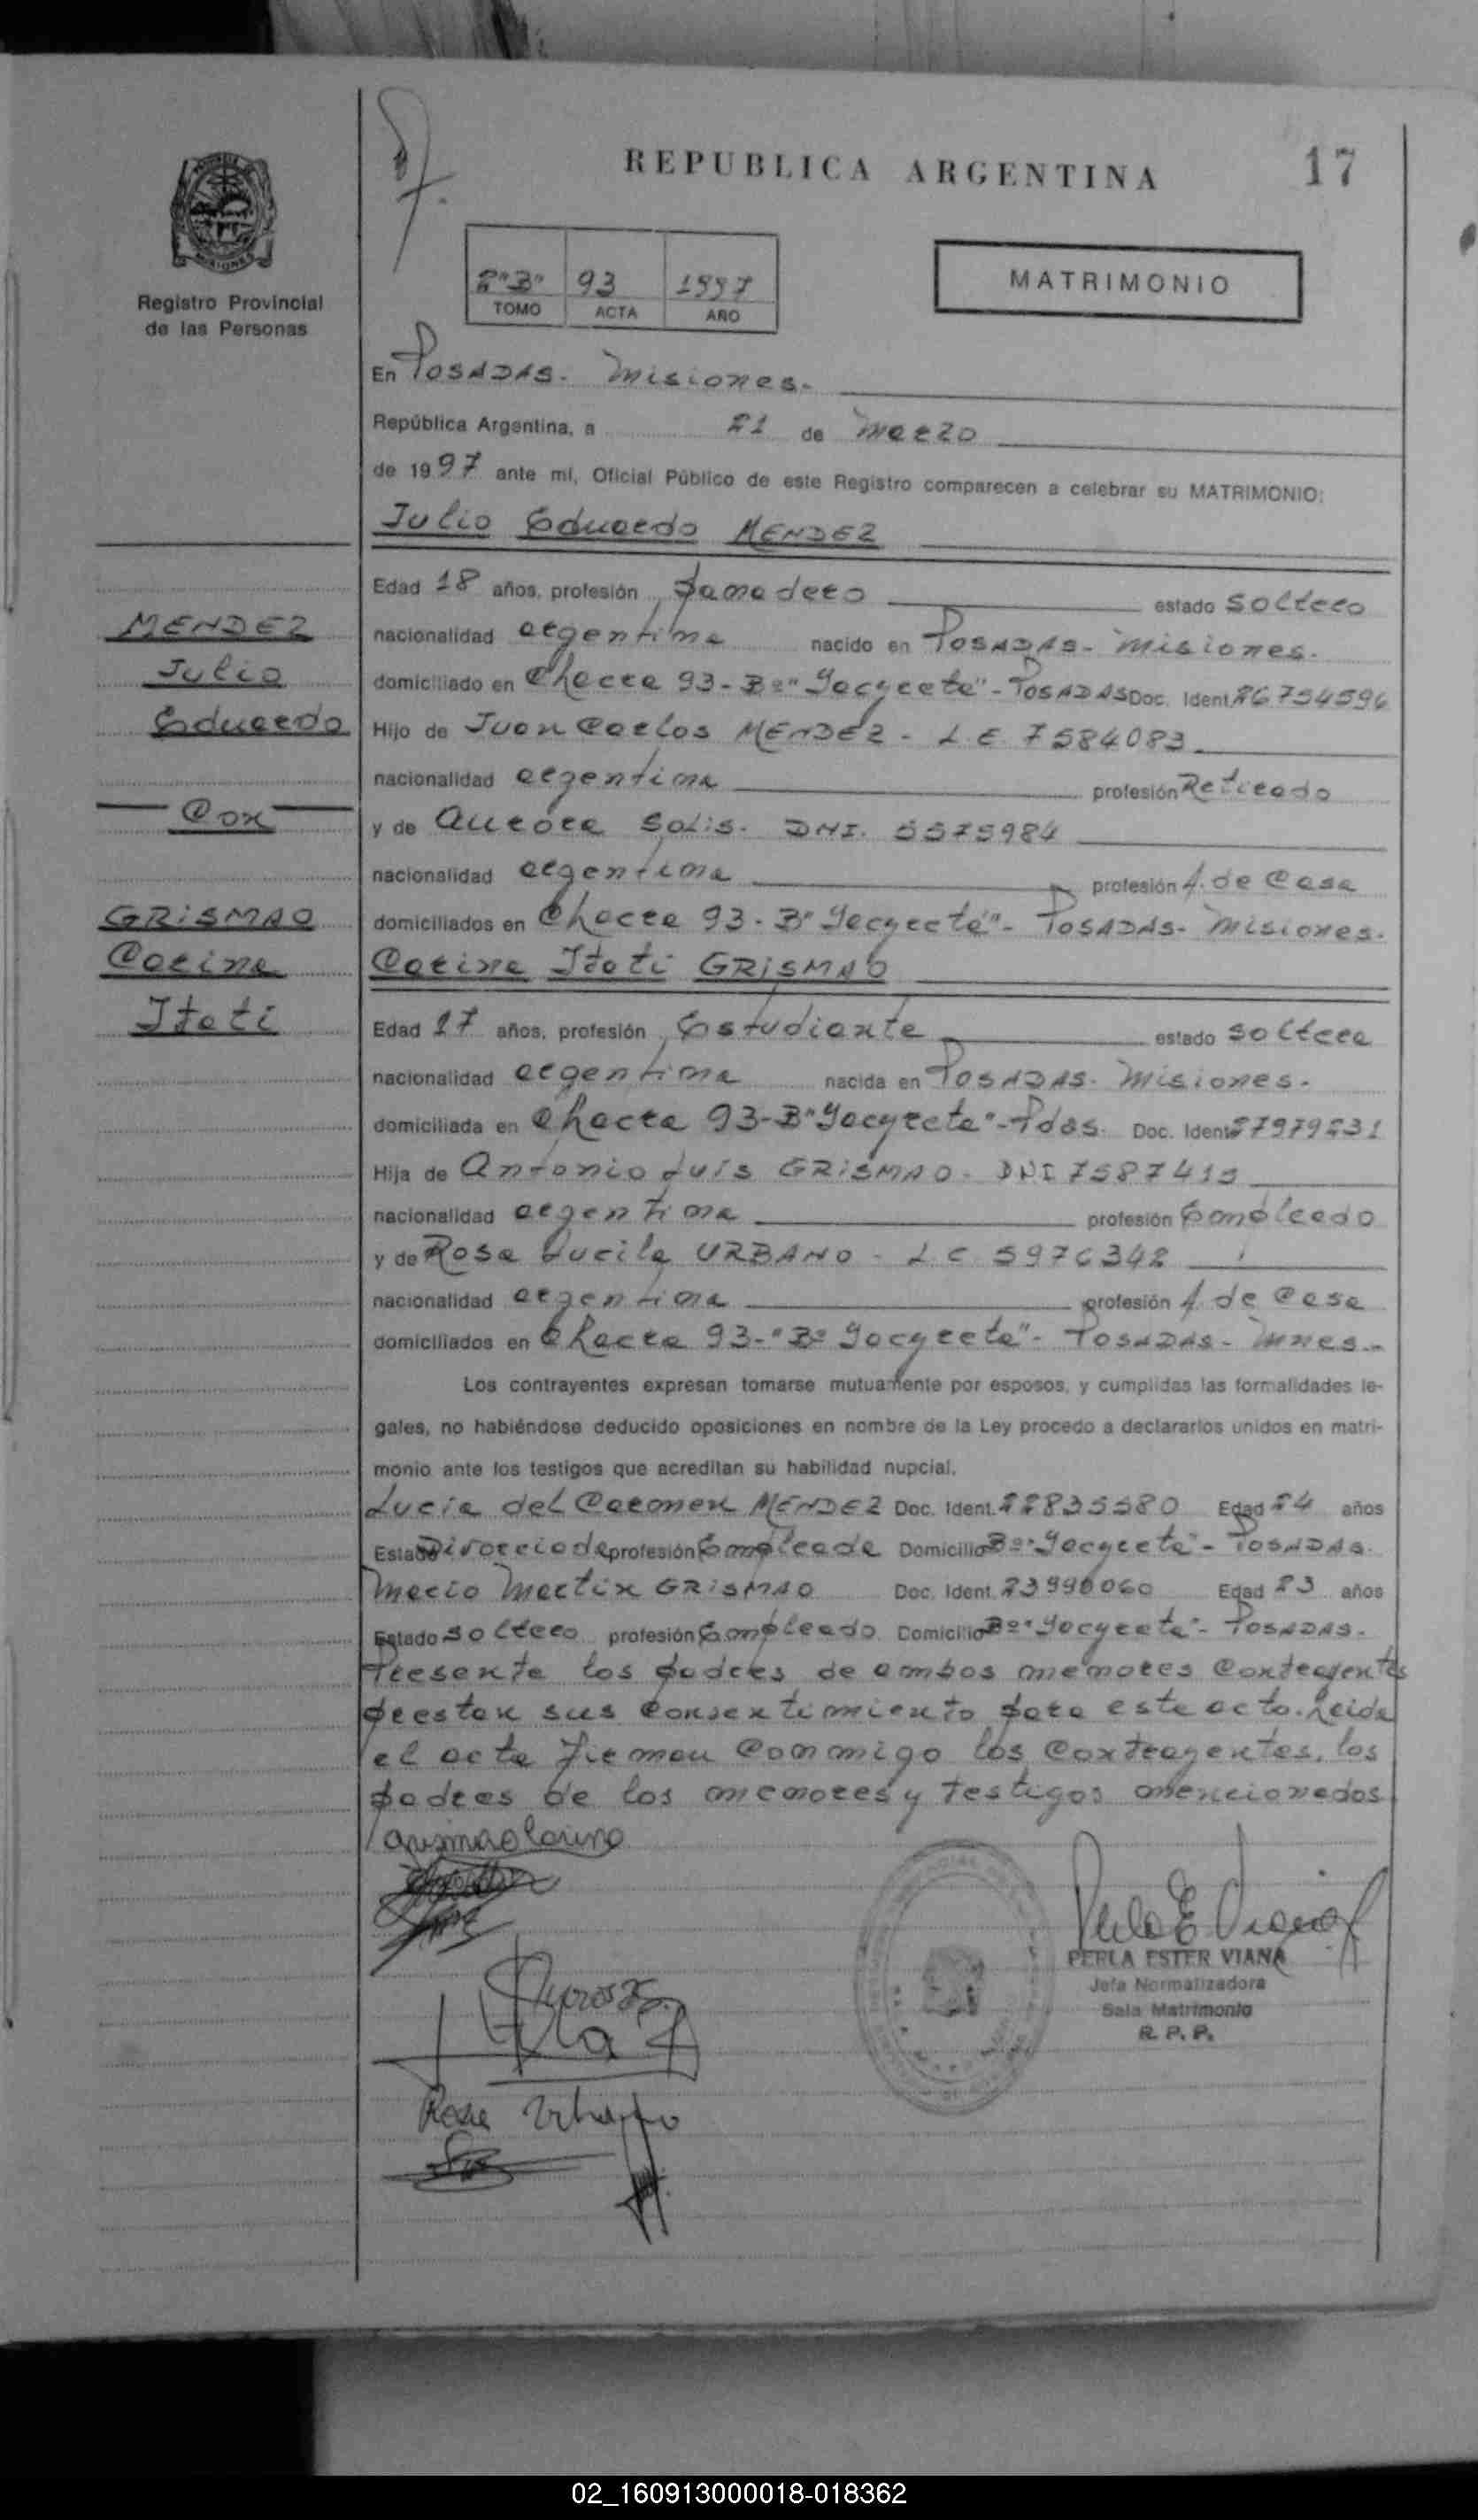 REPUBLICA ARGENTINA
17
MISIONES
Registro Provincial
de las Personas
2"B" 93 1997
TOMO ACTA AÑO
MATRIMONIO
En POSADAS. Misiones.
República Argentina, a 21 de Marzo
de 1997 ante mí, Oficial Público de este Registro comparecen a celebrar su MATRIMONIO:
Julio Eduardo MENDEZ
MENDEZ
Julio
Eduardo
Con
GRISMAO
Corina
Itati
Edad 18 años, profesión Panadero estado Soltero
nacionalidad argentina nacido en POSADAS- Misiones.
domiciliado en Chacra 93-Bº"Yacyreta"-POSADAS Doc. Ident. 26754596
Hijo de Juan Carlos MENDEZ - L.E. 7584083
nacionalidad argentina profesión Retirado
y de Aurora Solis. DNI. 5575984
nacionalidad argentina profesión A. de Casa
domiciliados en Chacra 93-B"Yacyretá"- POSADAS- Misiones.
Corina Itati GRISMAO
Edad 17 años, profesión Estudiante estado Soltera
nacionalidad argentina nacida en POSADAS. Misiones.
domiciliada en Chacra 93-B"Yacyreta"-Pdas. Doc. Ident. 27979231
Hija de Antonio Luis GRISMAO- DNI 7587415
nacionalidad argentina profesión Empleado
y de Rosa Lucila URBANO - L.C 5976342
nacionalidad argentina profesión A. de Casa
domiciliados en Chacra 93-"Bº Yacyreta"- POSADAS- Mnes.-
Los contrayentes expresan tomarse mutuamente por esposos, y cumplidas las formalidades le-
gales, no habiéndose deducido oposiciones en nombre de la Ley procedo a declararlos unidos en matri-
monio ante los testigos que acreditan su habilidad nupcial.
Lucia del Carmen MENDEZ Doc. Ident. 22835580 Edad 24 años
Estado Divorciada profesión Empleada Domicilio Bº"Yacyreta"- POSADAS.
Mario Martin GRISMAO Doc. Ident. 23990060 Edad 23 años
Estado Soltero profesión Empleado Domicilio Bº"Yacyreta"- POSADAS-
Presente los padres de ambos menores Contrayentes
prestan sus Consentimiento para este acto. Leida
el acta firman Conmigo los Contrayentes, los
padres de los menores y testigos mencionados
Grismao Corina
Rosa Urbano
Perla E Viana
PERLA ESTER VIANA
Jefa Normalizadora
Sala Matrimonio
R. P. P.
02_160913000018-018362